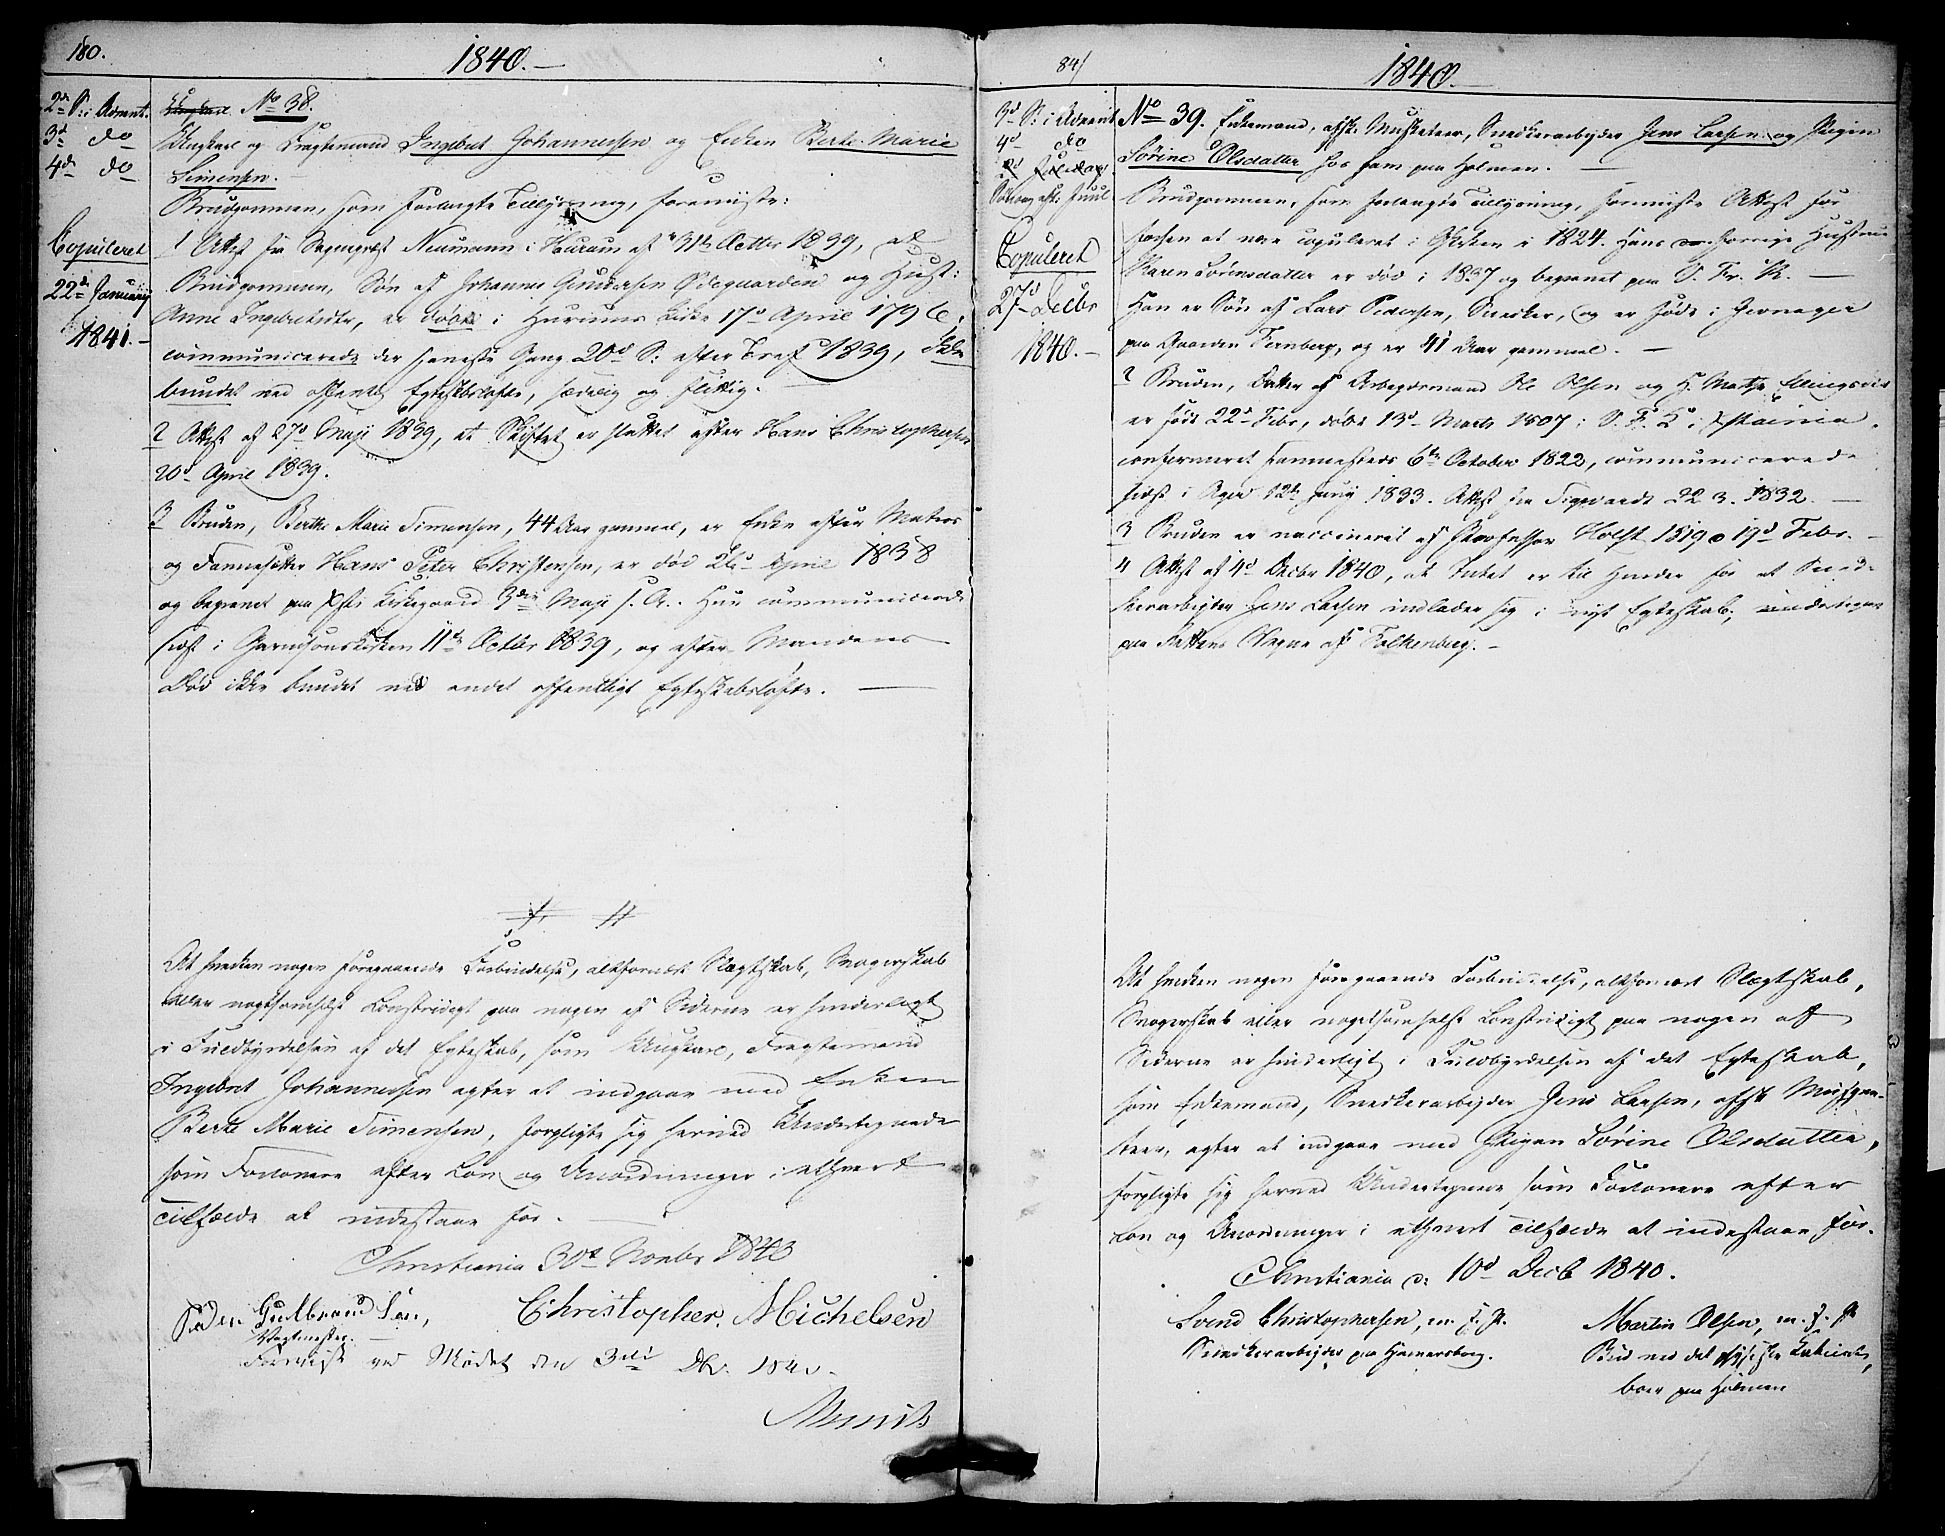 180.
1840.
2d S: i Advent.
3d do
4d do
Copuleret
22d Januarij
1841.
No 38.
Ungkarl og Fragtemand Ingebret Johannessen og Enken Berte Marie
Simensen.
Brudgommen, som forlangte Tillysning, foreviiste:
1 Attest fra Sogneprest Neumann i Hurum af 31te Octbr 1839, at
Brudgommen, Søn af Johannes Gundersen Ødegaarden og Hust:
Anne Ingebretsdtr, er døbt i Hurums Kirke 17d April 1796,
communicerede der seneste Gang 20d S: efter Tref 1839, ikke
bundet ved offentl Egteskabsløfte, sædelig og flittig.
2 Attest af 27d Maji 1839, at Skiftet er sluttet efter Hans Christophersen
20d April 1839.
3 Bruden, Berthe Marie Simensen, 44 Aar gammel, er Enke efter Matros
og Hans Peter Christensen, er død 26d April 1838
og begravet paa Kirkegaard 3die Maji s. A. Hun communicerede
sidst i Garnisonskirken 11te Octbr 1839, og efter Mandens
Død ikke bundet ved andet offentligt Egteskabsløfte.
At hverken nogen foregaaende Forbindelse, altfornært Slægtskab, Svogerskab
eller nogetsomhelst Lovstridigt paa nogen af Siderne er hinderligt
i Fuldbyrdelsen af det Egteskab, som Ungkarl, Fragtemand
Ingebret Johannessen agter at indgaae med Enken
Berte Marie Simensen, forpligte sig herved Undertegnede
som Forlovere efter Lov og Anordninger i ethvert
Tilfælde at indestaae for.
Christiania 30te Novbr 1840
Peder Gulbrandsen,
Christopher Michelsen
Vagtmester.
Foreviist ved Mødet den 3die Dbr. 1840.
84/
1840.
3d S: i Advent
4d do
2d Juledag
Søndag eft. Juul.
Copuleret
27d Decbr
1840.
No 39. Enkemand, afsk. Musketeer, Snedkerarbejder Jens Larsen og Pigen
Sørine Olsdatter hos ham paa Holmen.
Brudgommen, som forlangte Tillysning, foreviiste Attest for
forhen at være copuleret i Kirken i 1824. Hans forrige Hustrue
Karen Sørensdatter er død i 1837 og begravet paa V. Fr. K.
Han er Søn af Lars Pedersen, Snedker, og er født i Jevnager
paa Gaarden Ternberg, og er 41 Aar gammel.
2 Bruden, Datter af Arbejdsmand Ole Olsen og H. Matja Ellingsdtr
er født 22d Febr, døbt 13d Marts 1807 i V. F. K i Xstiania.
confirmeret sammesteds 6te October 1822, communicerede
sidst i Ager 12te Juny 1833. Attest fra 22 3. 1832.
3 Bruden er vaccineret af Professor Holst 1819 19d Febr.
4 Attest af 4d Decbr 1840, at Intet er til Hinder for at Sned-
kerarbejder Jens Larsen indlader sig i nyt Egteskab; undertegnet
paa Rettens Vegne af Falkenberg.
At hverken nogen foregaaende Forbindelse, altfornært Slægtskab,
Svogerskab eller nogetsomhelst Lovstridigt paa nogen af
Siderne er hinderligt i Fuldbyrdelsen af det Egteskab,
som Enkemand, Snedkerarbejder Jens Larsen, afsk Musque-
teer, agter at indgaae med Pigen Sørine Olsdatter,
forpligte sig herved Undertegnede som Forlovere efter
Lov og Anordninger i ethvert Tilfælde at indestaae for.
Christiania d: 10d Decb 1840.
Svend Christophersen, m. f. P.
Martin Olsen, m. f. P.
Snedkerarbejder paa Hamersborg.
Bud ved det
boer paa Holmen